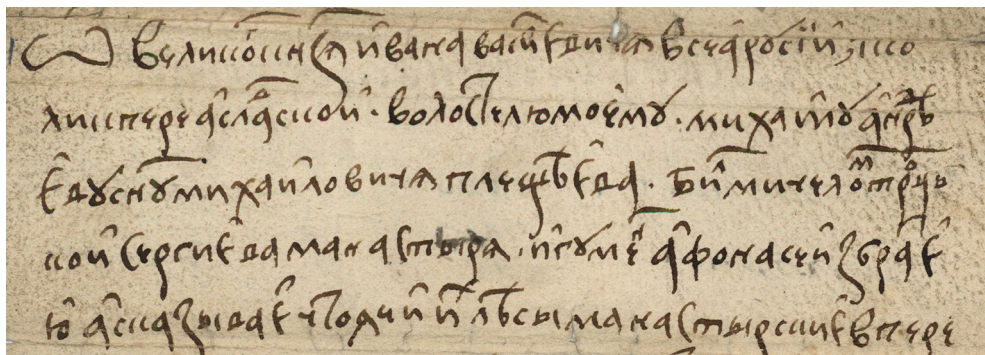 Ѿ великого кнзѧ ивана васильевичѧ всеа росии в шо
ли в переаславской · волостелю моему · михаилу андрѣ
еву сну михаиловича плещѣева · бил ми челом троец
кой сергиева манастырѧ · игумен афонасеи з брате
ю а сказывает что деи и лѣсы манастырские в пере